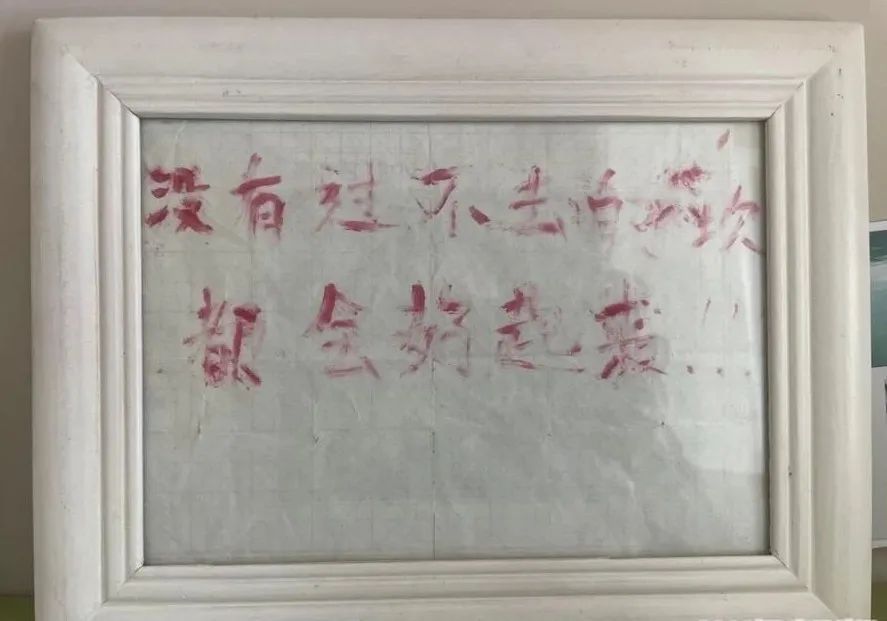 没有过不去的坎
都会好起来!!!